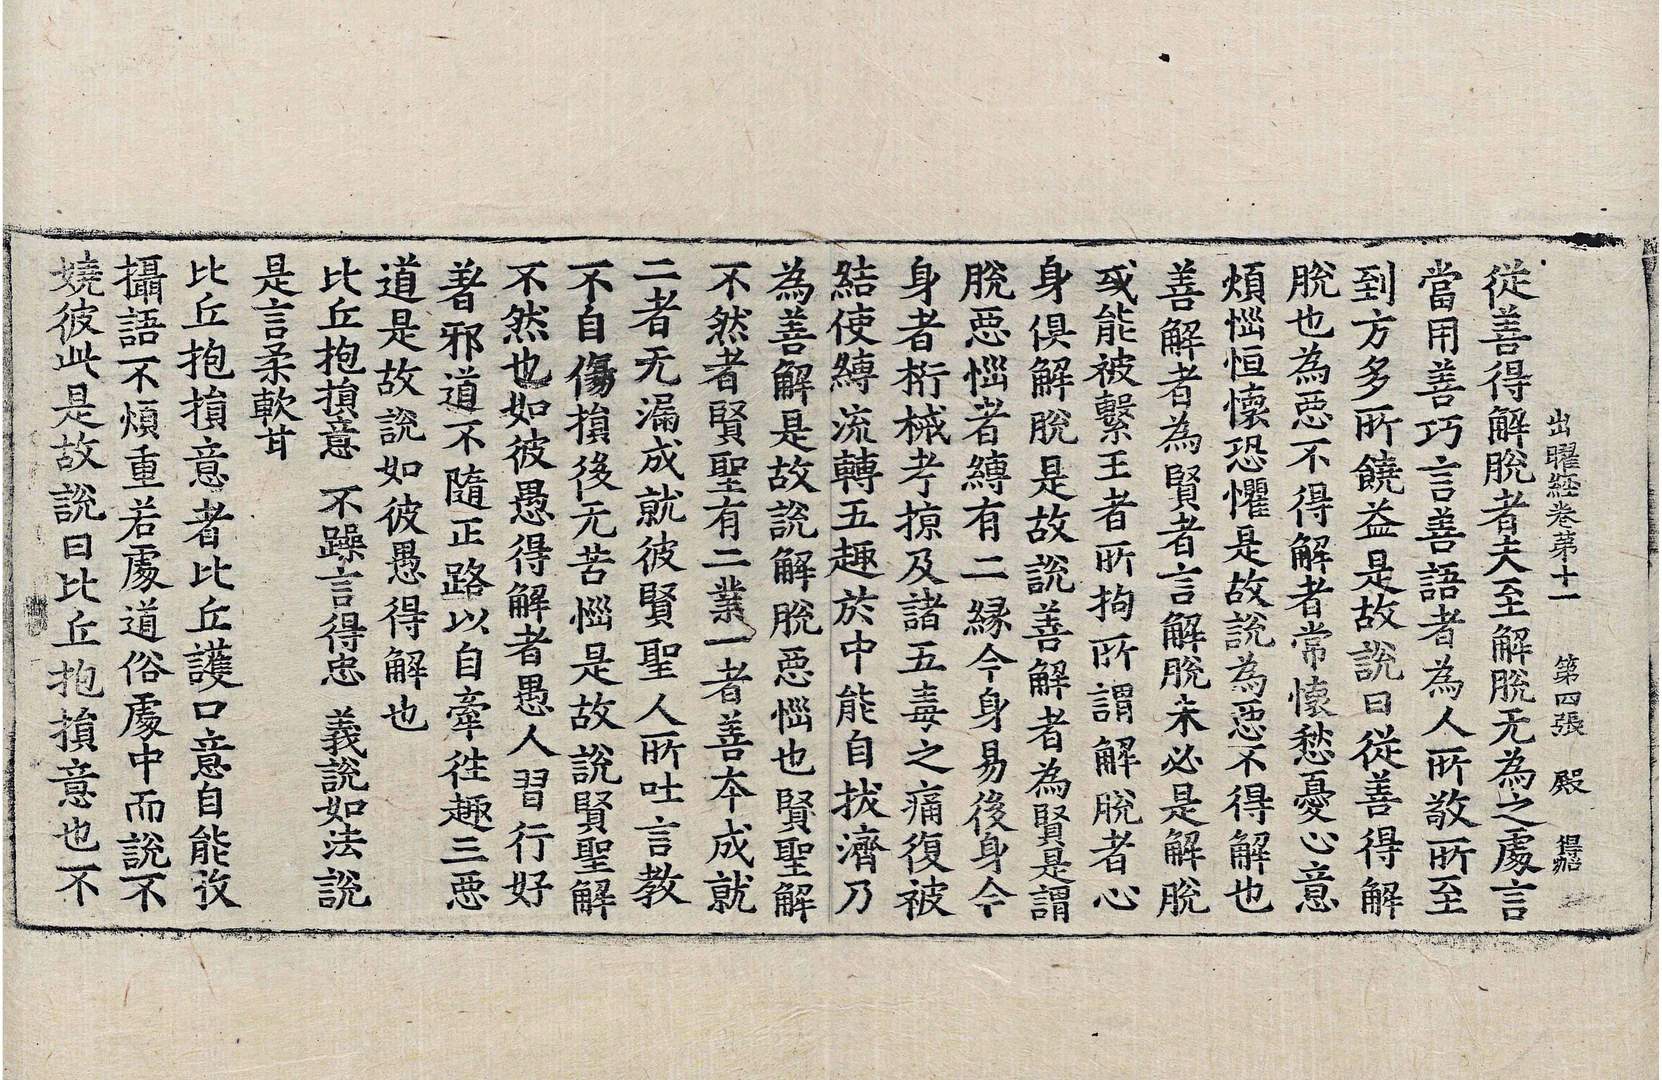 出曜經卷第十一 第四張 殿 得瑞
從善得解脫者夫至解脫无為之處言
當用善巧言善語者為人所敬所至
到方多所饒益是故說曰從善得解
脫也為惡不得解者常懷愁憂心意
煩惱恒懷恐懼是故說為惡不得解也
善解者為賢者言解脫未必是解脫
或能被繫王者所拘所謂解脫者心
身俱解脫是故說善解者為賢是謂
脫惡惱者縛有二緣今身易後身今
身者桁械考掠及諸五毒之痛復被
結使縛流轉五趣於中能自拔濟乃
為善解是故說解脫惡惱也賢聖解
不然者賢聖有二業一者善本成就
二者无漏成就彼賢聖人所吐言教
不自傷損後无苦惱是故說賢聖解
不然也如彼愚得解者愚人習行好
著邪道不隨正路以自牽往趣三惡
道是故說如彼愚得解也
比丘抱損意 不躁言得忠 義說如法說
是言柔軟甘
比丘抱損意者比丘護口意自能攷
攝語不煩重若處道俗處中而說不
嬈彼此是故說曰比丘抱損意也不